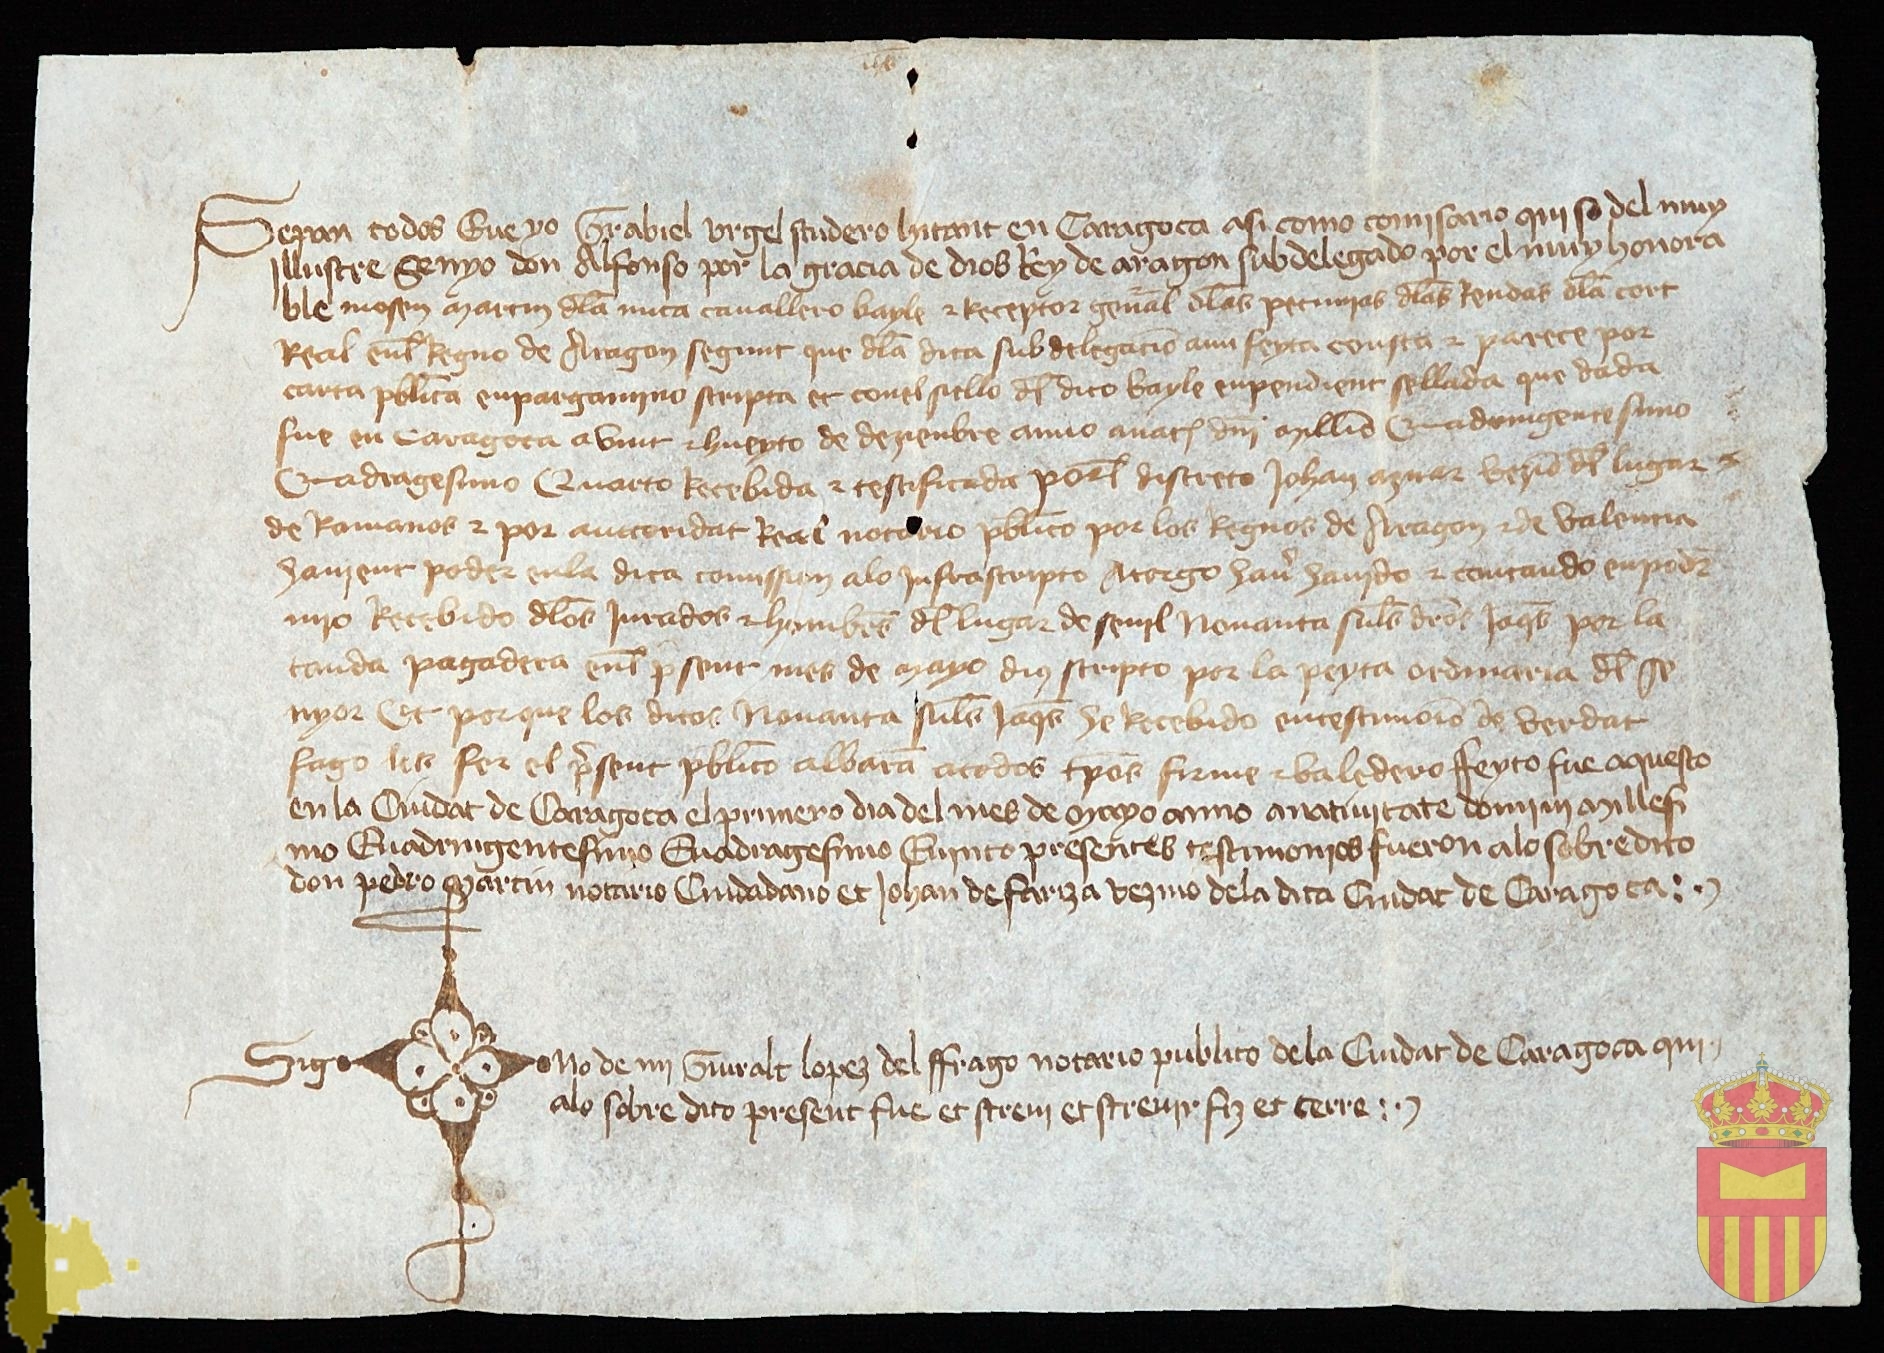 Sepan todos Que yo Grabiel Urgel scudero hitant en Caragoca asi como comisario qui so del muy
illustre Senyo don Alfonso por la gracia de dios Rey de aragon subdelegado por el muy honora
ble mosen martin dla nuca cavallero bayle & Receptor gen̄al dlas pecunias dlas Rendas dla cort
Real enl Regno de Aragon segunt que dla dita subdelegacio ami feyta consta & parece por
carta pblica enpargamino scripta et conel siello dl dito bayle enpendient sellada que dada
fue en Caragoca a vint & hueyto de dezienbre anno anatj dnj millio Quadringentesimo
Quadragesimo Quarto Recebida & testificada porl discreto Johan aznar vezio dl lugar
de Romanos & por auctoridat Real notario pblico por los Regnos de Aragon & de Valencia
havient poder enla dita comission alo infrascripto Atorgo hav havido & contando enpoder
mio Recebido dlos Jurados & hombres dl lugar de senyl Novanta suls dros Jaqs por la
tanda pagadera enl psent mes de mayo dius scripto por la peyta ordinaria dl Se
nyor Et por que los ditos Novanta suls Jaqs he Recebido entestimonio de verdat
fago les fer el psent pblico albara atodos tpos firme & valedero ffeyto fue aquesto
en la Ciudat de Caragoca el primero dia del mes de Mayo anno anativitate domini millesi
mo Quadringentesimo Quadragesimo Quinto presentes testimonios fueron alo sobredito
don pedro Martin notario Ciudadano et Johan de fariza vezino dela dita Ciudat de Caragoca :·
Sig no de mi Guiralt lopez del ffrago notario publico dela Ciudat de Caragoca qui
alo sobre dito present fue et screvi et screvir fiz et cerre :·